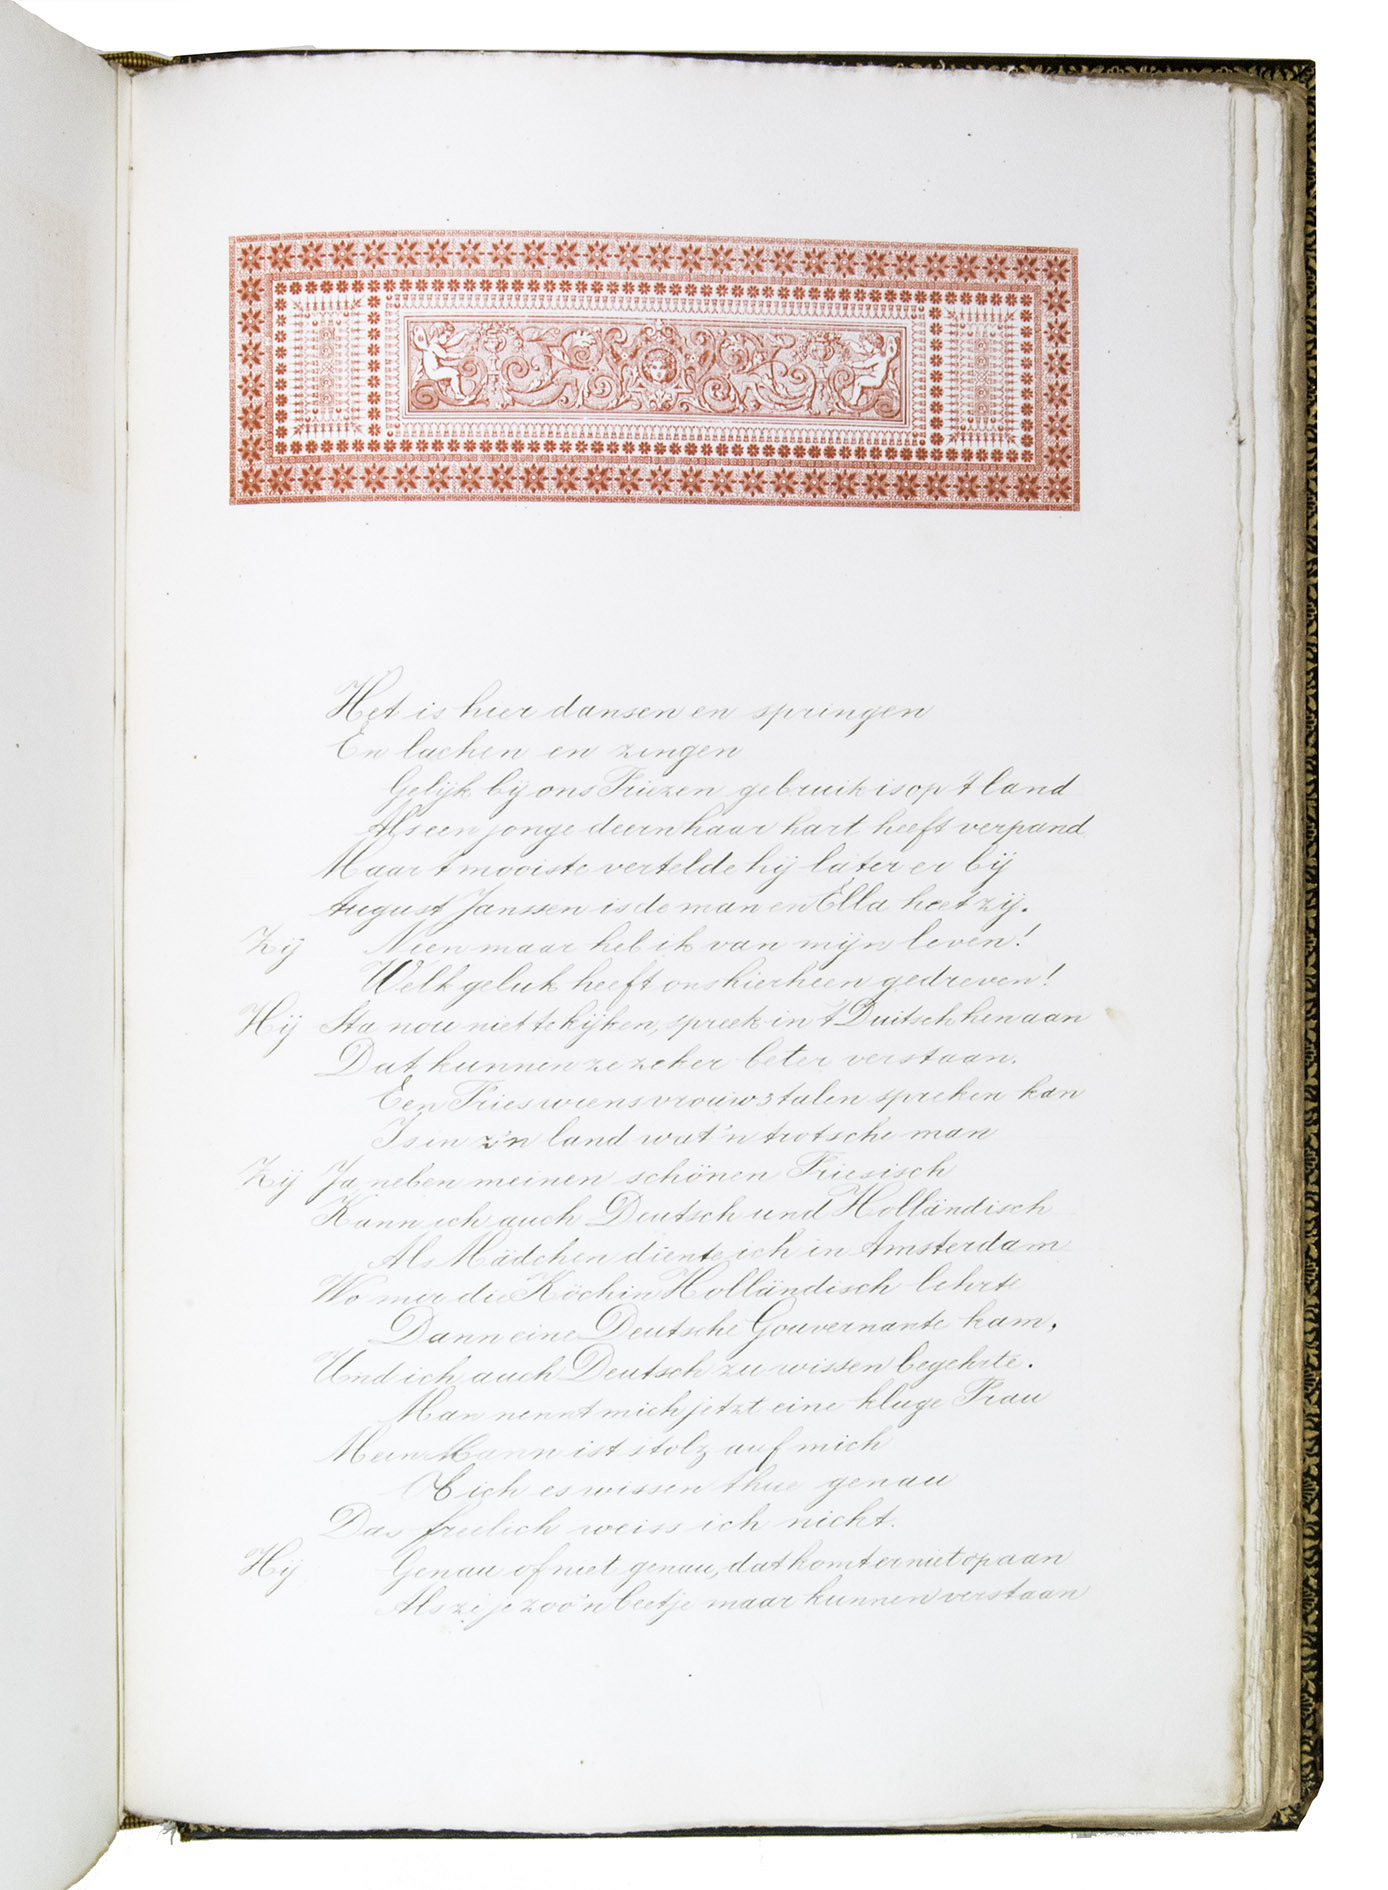 Het is hier dansen en springen
En lachen en zingen
Gelijk bij ons Friezen gebruik is op 't land
Als een jonge deern haar hart heeft verpand
Maar 't mooiste vertelde hij later er bij
August Janssen is de man en Ella heet zij.
Zij Neen maar heb ik van mijn leven!
Welk geluk heeft ons hierheen gedreven!
Hij Sta nou niet te kijken, spreek in 't Duitsch hen aan
Dat kunnen ze zeker beter verstaan.
Een Fries wiens vrouw 3 talen spreken kan
Is in z'n land wat 'n trotsche man
Zij Ja neben meinen schönen Friesisch
Kann ich auch Deutsch und Holländisch
Als Mädchen diente ich in Amsterdam
Wo mir die Köchin Holländisch lehrte
Dann eine Deutsche Gouvernante kam,
Und ich auch Deutsch zu wissen begehrte.
Man nennt mich jetzt eine kluge Frau
Mein Mann ist stolz auf mich
Ob ich es wissen thue genau
Das freilich weiss ich nicht.
Hij Genau of niet genau, dat komt er niet op aan
Als zi je zoo'n beetje maar kunnen verstaan